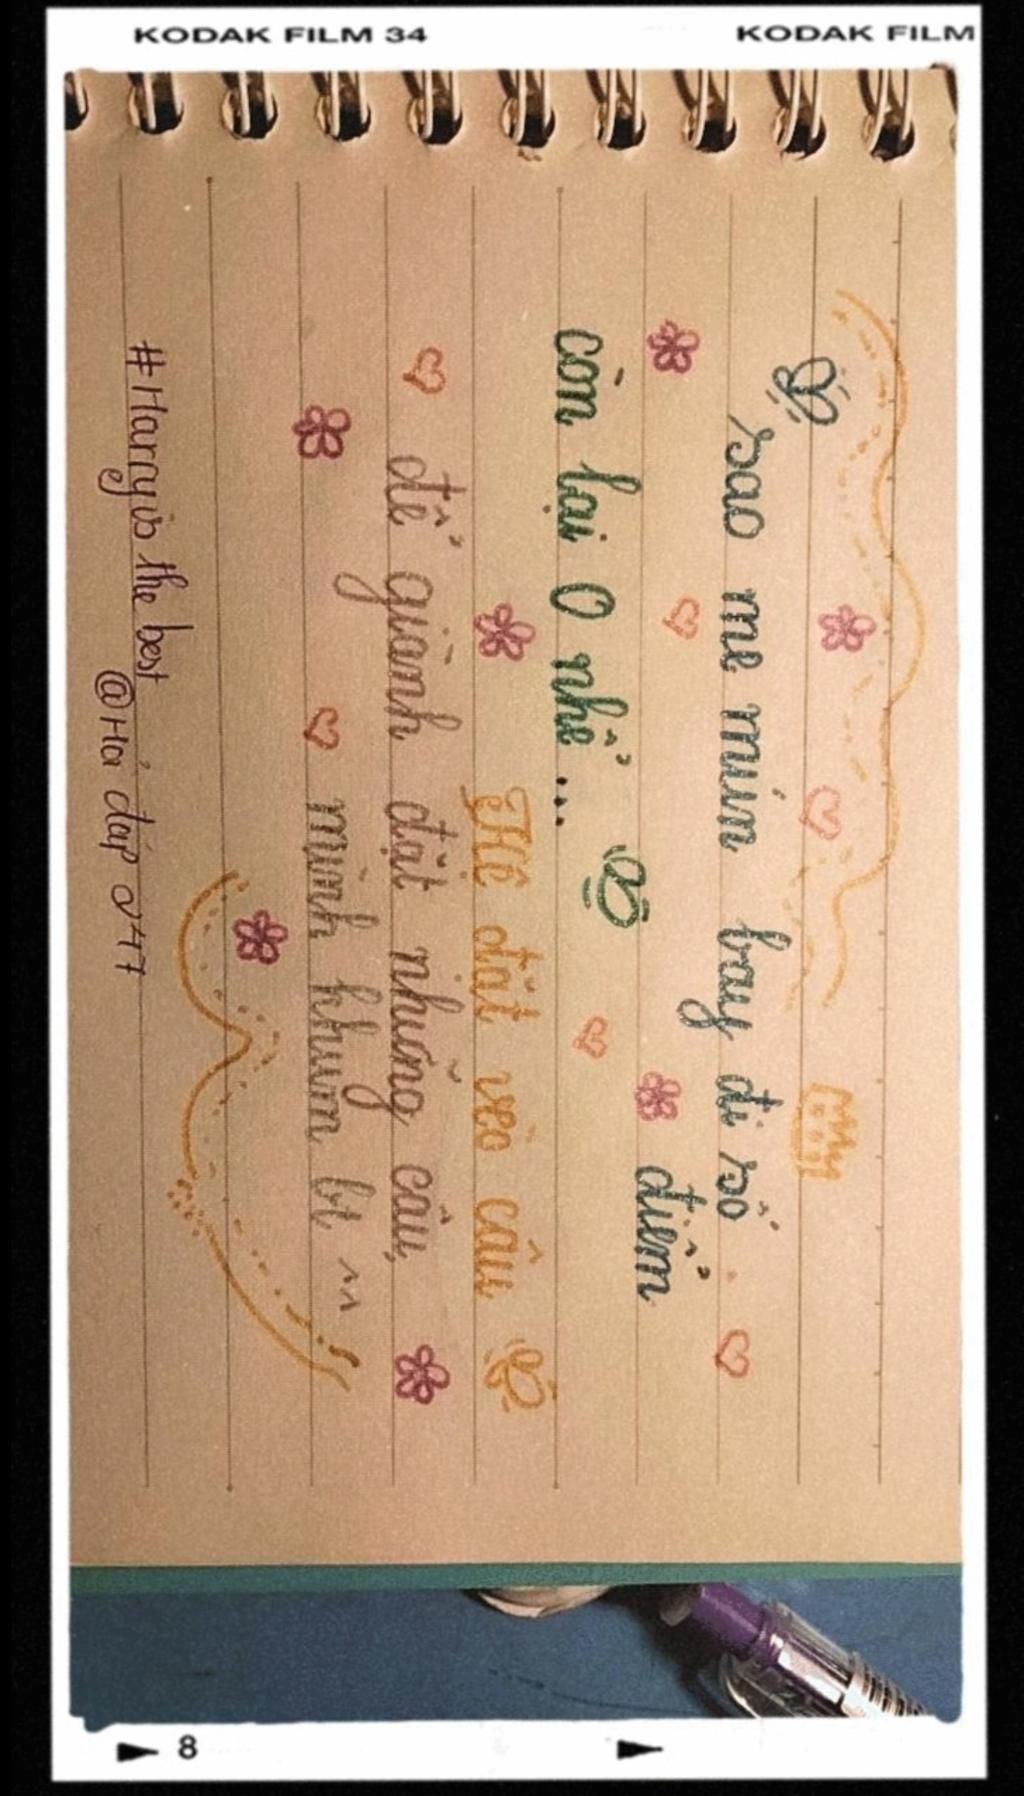 KODAK FILM 34
KODAK FILM
sao me mím bay đi số
điểm
còn lại 0 nhể...
THế đặt vèo câu
để giành đặt những câu
mình hhưm bt nn
#Harry is the best
@Hỏi đáp 247
8